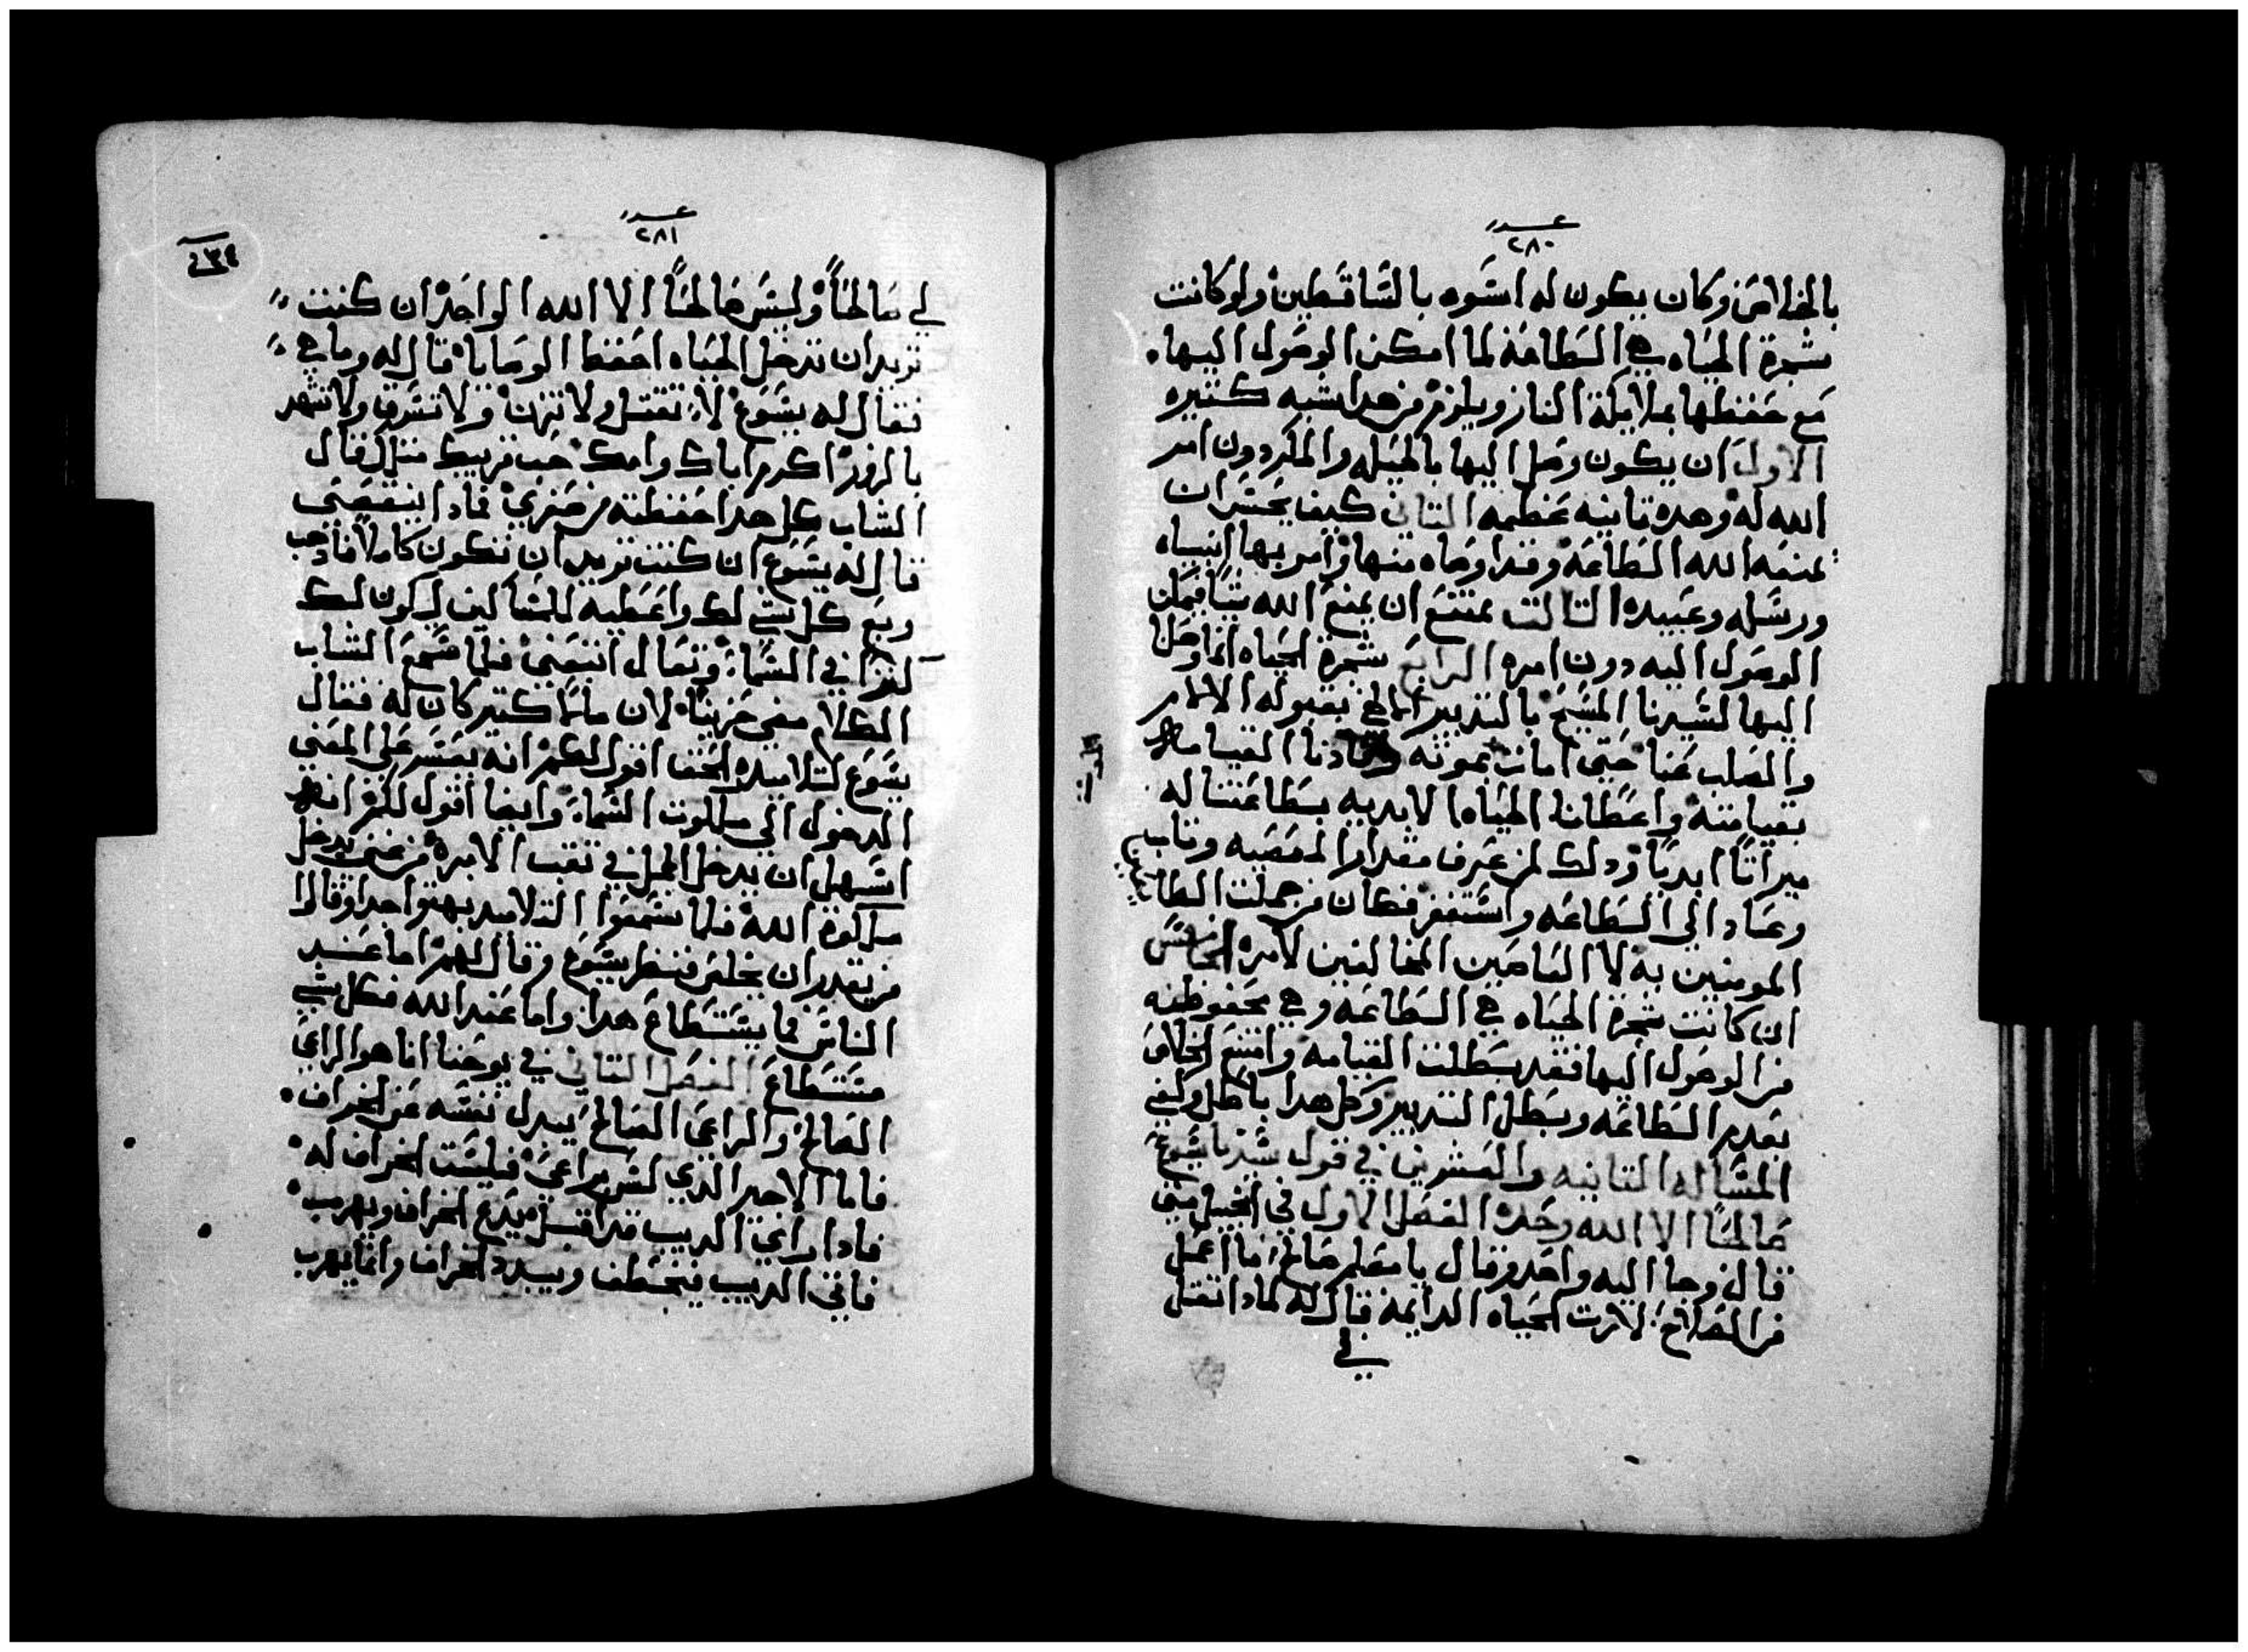 عدد
٢٨٠
بالخلاص وكان يكون له اسوه بالساقطين ولو كانت
شجرة الحياه هي الطاعة لما امكن الوصول اليها
مع حفظها بملايكة النار ويلزم من هدا شبه كتيره
الاول ان يكون وصل اليها بالحيله والمكر دون امر
الله له وهده تانيه عظيمه التاني كيف يحسن ان
يمنع الله الطاعه وقد اوصاه منها وامر بها انبياه
ورسله وعبيده التالت يمتنع ان يمنع الله شيا فيمكن
الوصول اليه دون امره الرابع شجرة الحياه انما وصل
اليها لسيدنا المسيح بالتدبير الالهي بقبوله الالام
والصلب عنا حتي امات بموته وافادنا القيامه
الموت
بقيامته واعطانا الحياه الابديه بطاعتنا له
ميراتا ابديا ودلك لمن عرف مقدار المعصيه وتاب
وعاد الي الطاعه واستغفر فكان من جملت الطايعين
المومنين به لا العاصين المخالفين لامره الخامس
ان كانت شجرة الحياه هي الطاعه وهي محفوظه
من الوصول اليها فقد بطلت القيامه وامتنع الخلاص
بعدم الطاعه وبطل التدبير وكل هدا باطل ولغي
المساله التانيه والعشرين في قول سيدنا يسوع
صالحا الا الله وحده الفصل الاول في انجيل متي
قال وجا اليه واحد وقال يا معلم صالح ما اعمل
من الصلاح لارت الحياه الدايمه قال له لمادا تقل
لي
عدد
٢٨١
٢٣٤
لي صالحا وليس صالحا الا الله الواحد ان كنت
تريد ان تدخل الحياه احفظ الوصايا قال له وما هي
فقال له يسوع لا تقتل ولا تزن ولا تسرق ولا تشهد
بالزور اكرم اباك وامك حب قريبك متلك قال
الشاب كل هدا حفظته من صغري فمادا ينقصني
قال له يسوع ان كنت تريد ان تكون كاملا فادهب
وبع كل شي لك واعطيه للمساكين ليكون لك
كنزا في السما وتعال اتبعني فلما سمع الشاب
الكلام مضي حزينا لان مالا كتير كان له فقال
يسوع لتلاميده الحق اقول لكم انه يعسر علي الغني
الدخول الي ملكوت السما وايضا اقول لكم انه
اسهل ان يدخل الجمل في تقب الابره من غني يدخل
ملكوة الله فلما سمعوا التلاميد بهتوا جدا وقالوا
من يقدر ان يخلص فنظر يسوع وقال لهم اما عند
الناس فما يستطاع هدا واما عند الله فكل شي
مستطاع الفصل التاني في يوحنا انا هو الراعي
الصالح والراعي الصالح يبدل نفسه عن الخراف
فاما الاجير الذي ليس براعي فليست الخراف له
فادا راي الديب قد اقبل يدع الخراف ويهرب
فاتي الديب فيخطف ويبدد الخراف وانما يهرب